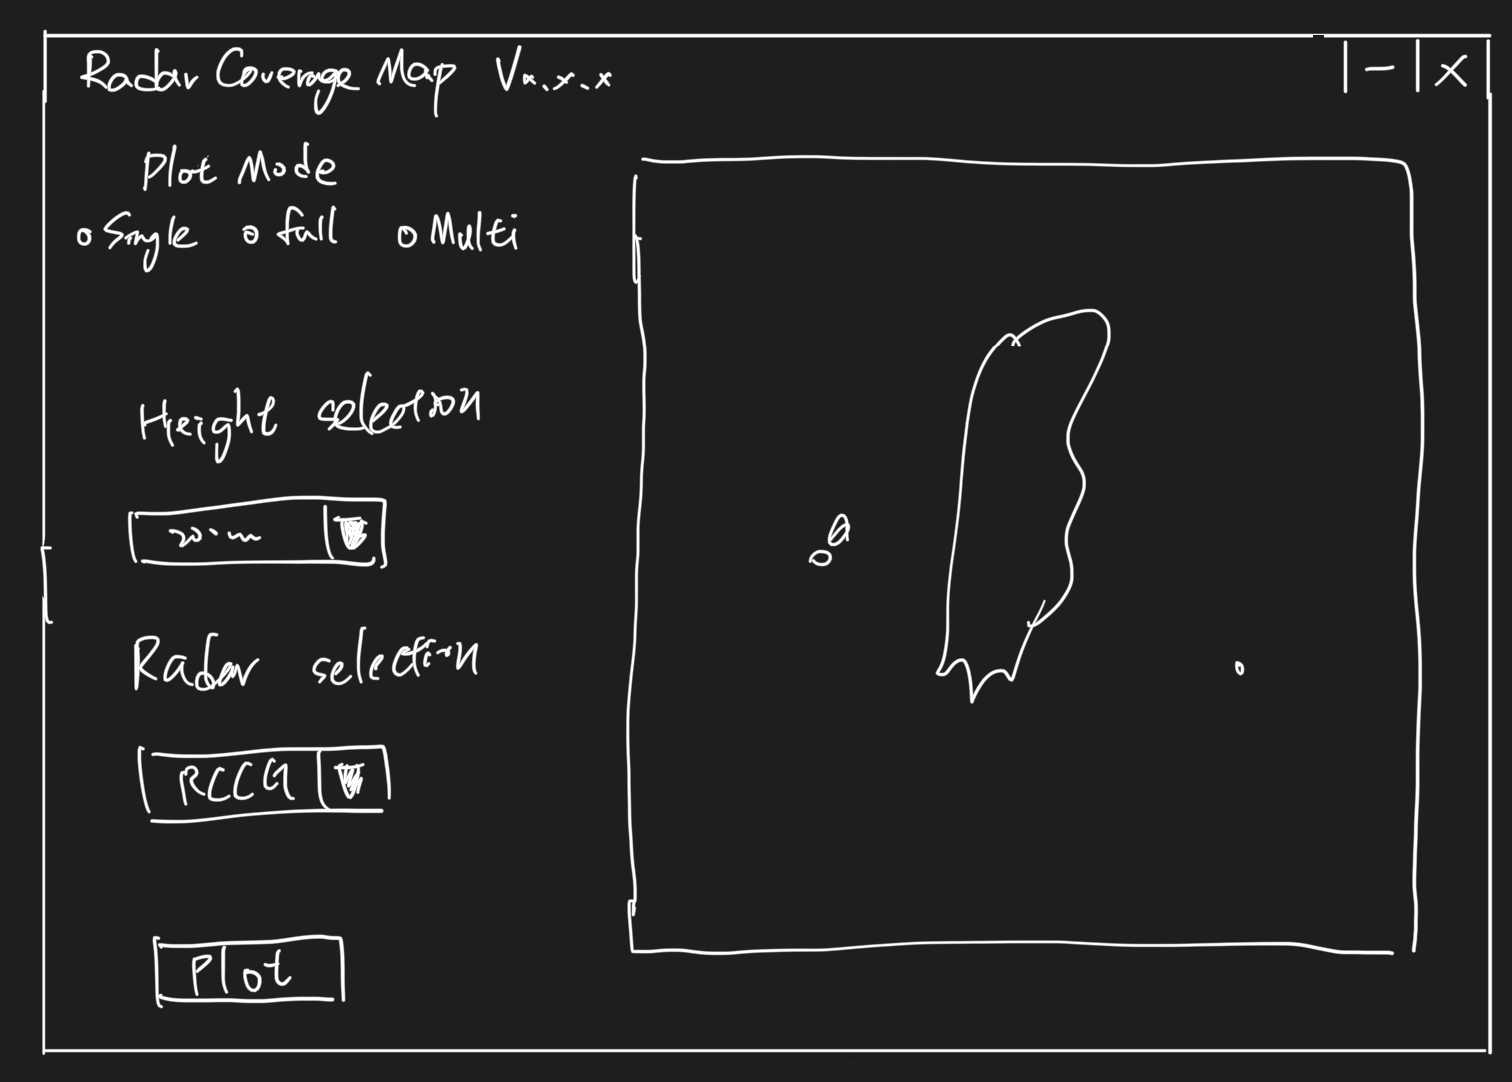 Radar Coverage Map Vx.x.x
Plot Mode
Single full Multi
Height selection
Radar selection
RCCG
Plot